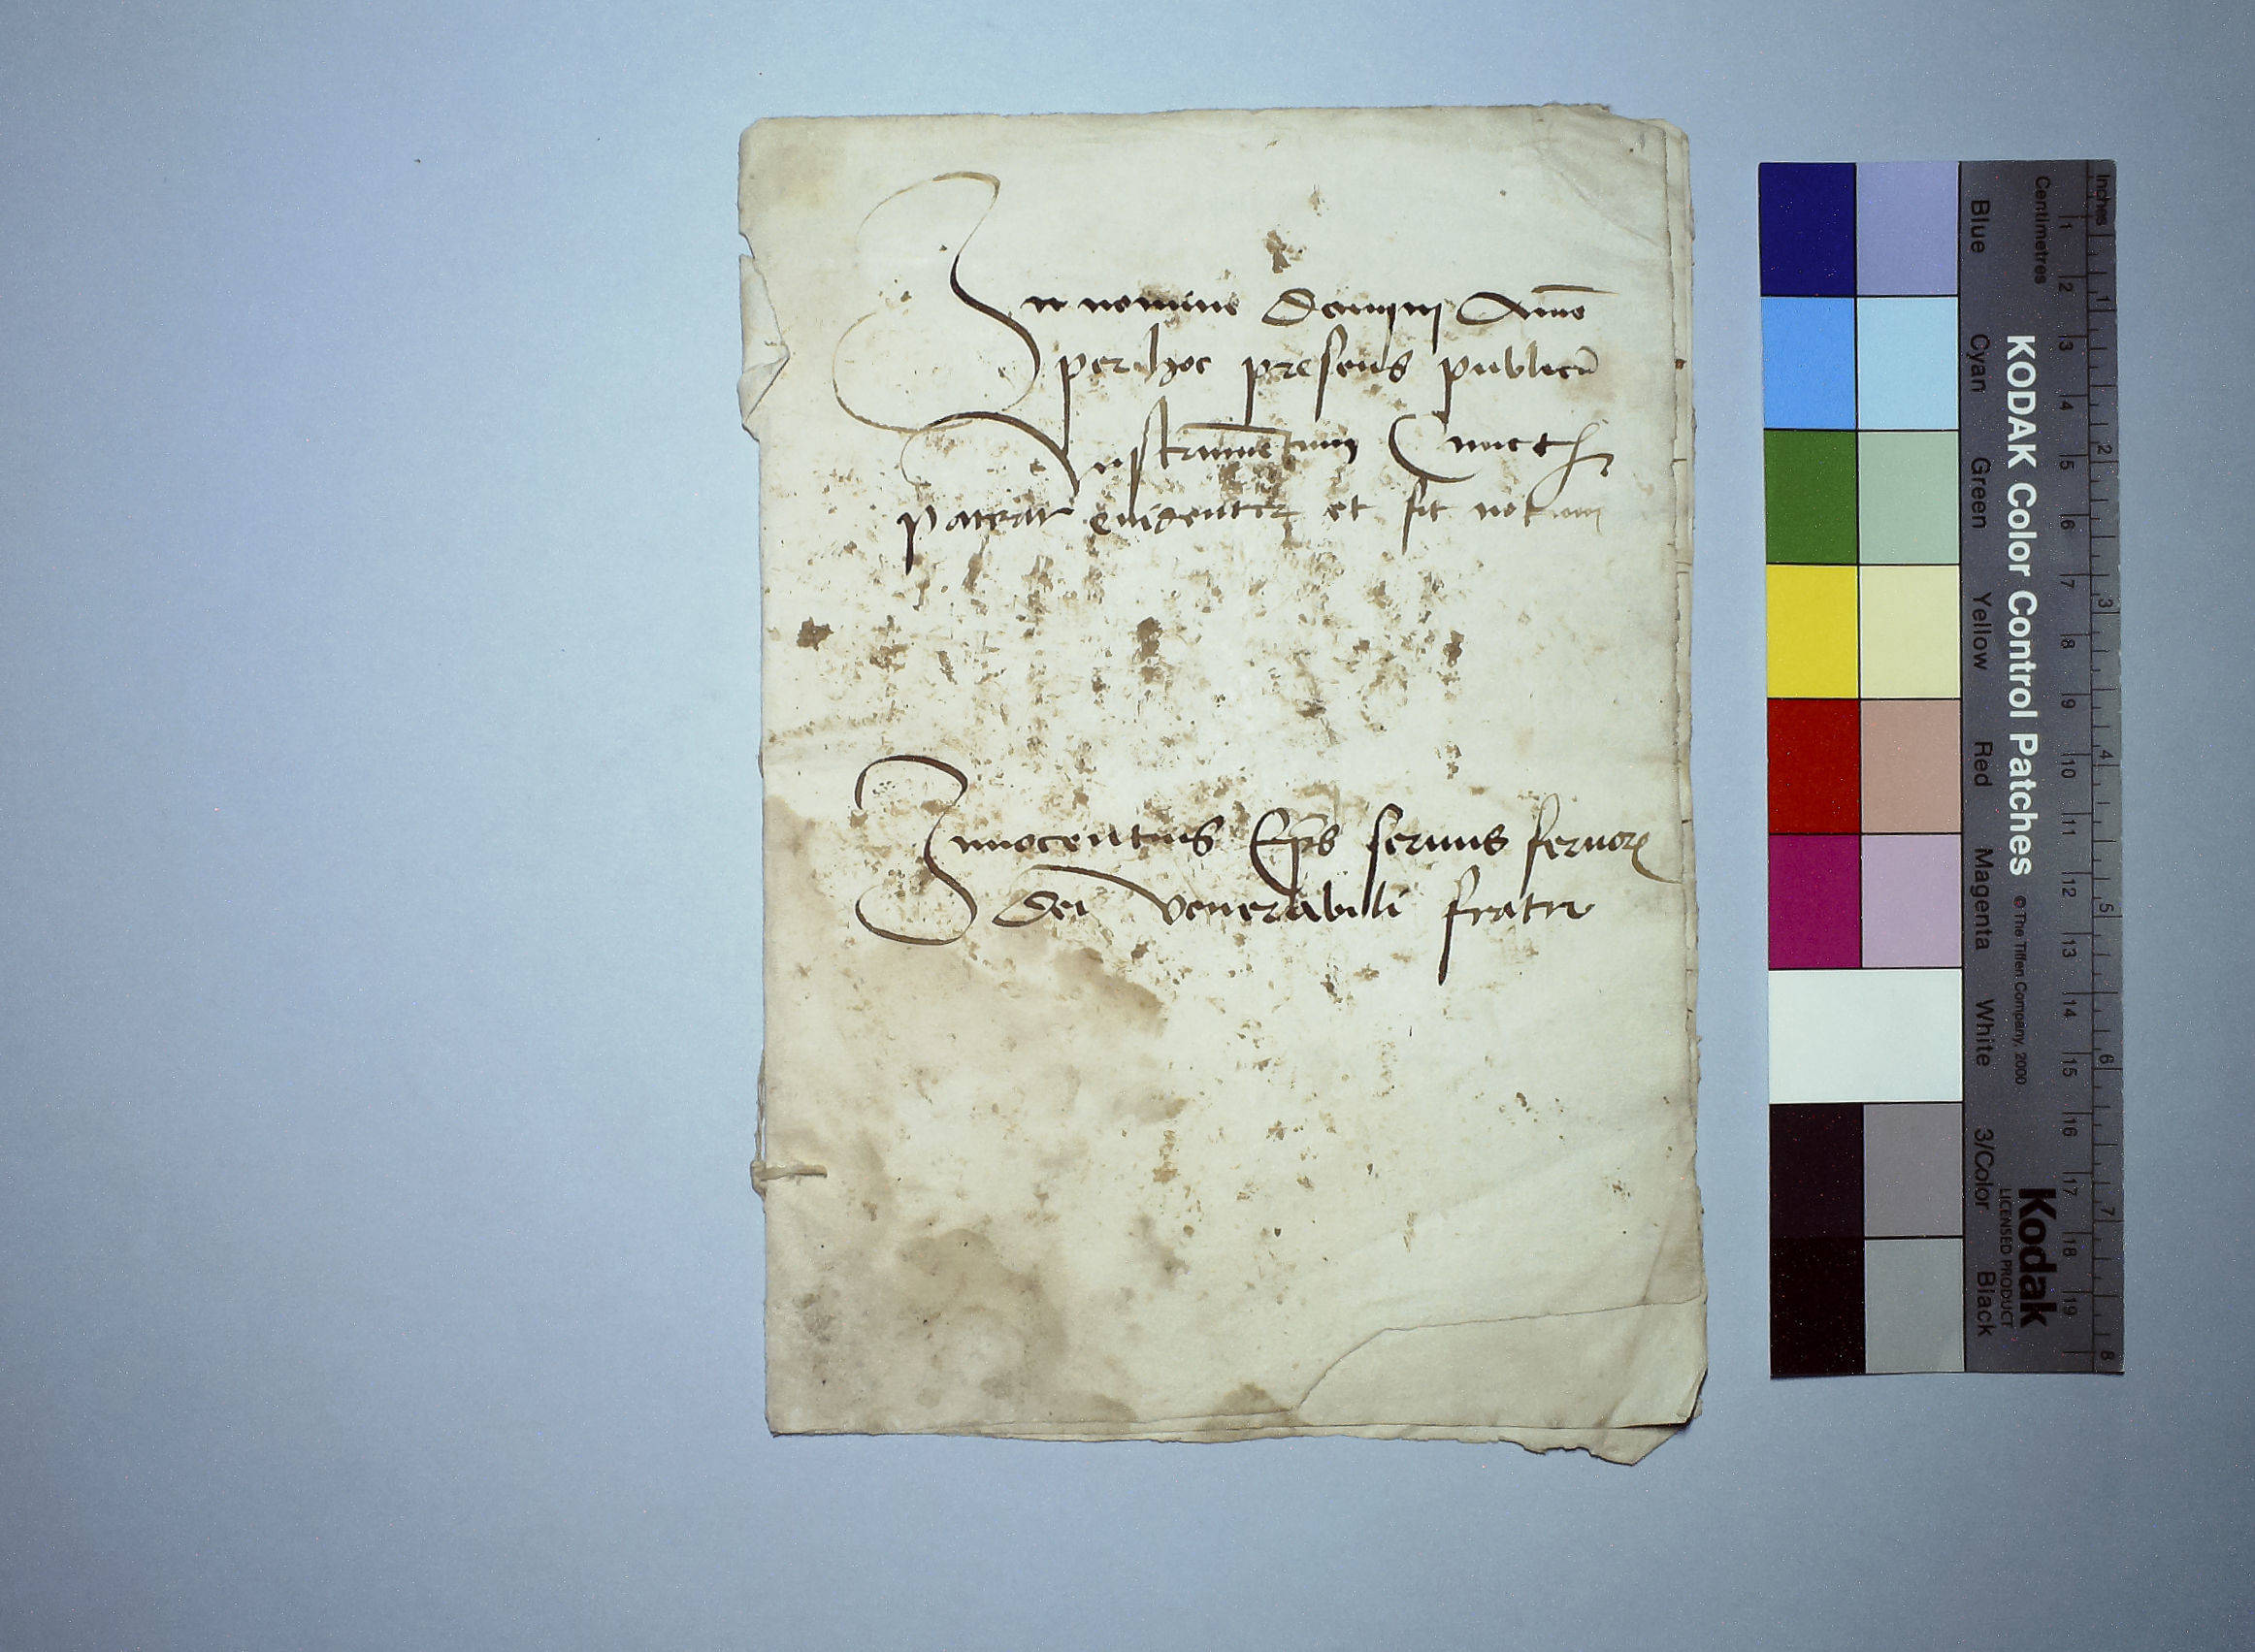 In nomine Dominj Ame
per hoc presens publicū
Instrumētum Cunctis
pateat euidenter et sit notum
Innocentius Ep̄s seruus seruoꝝ
dei venerabili fratri
KODAK Color Control Patches
© The Tiffen Company, 2000
Kodak
LICENSED PRODUCT
Inches 1 2 3 4 5 6 7 8
Centimetres 1 2 3 4 5 6 7 8 9 10 11 12 13 14 15 16 17 18 19
Blue Cyan Green Yellow Red Magenta White 3/Color Black